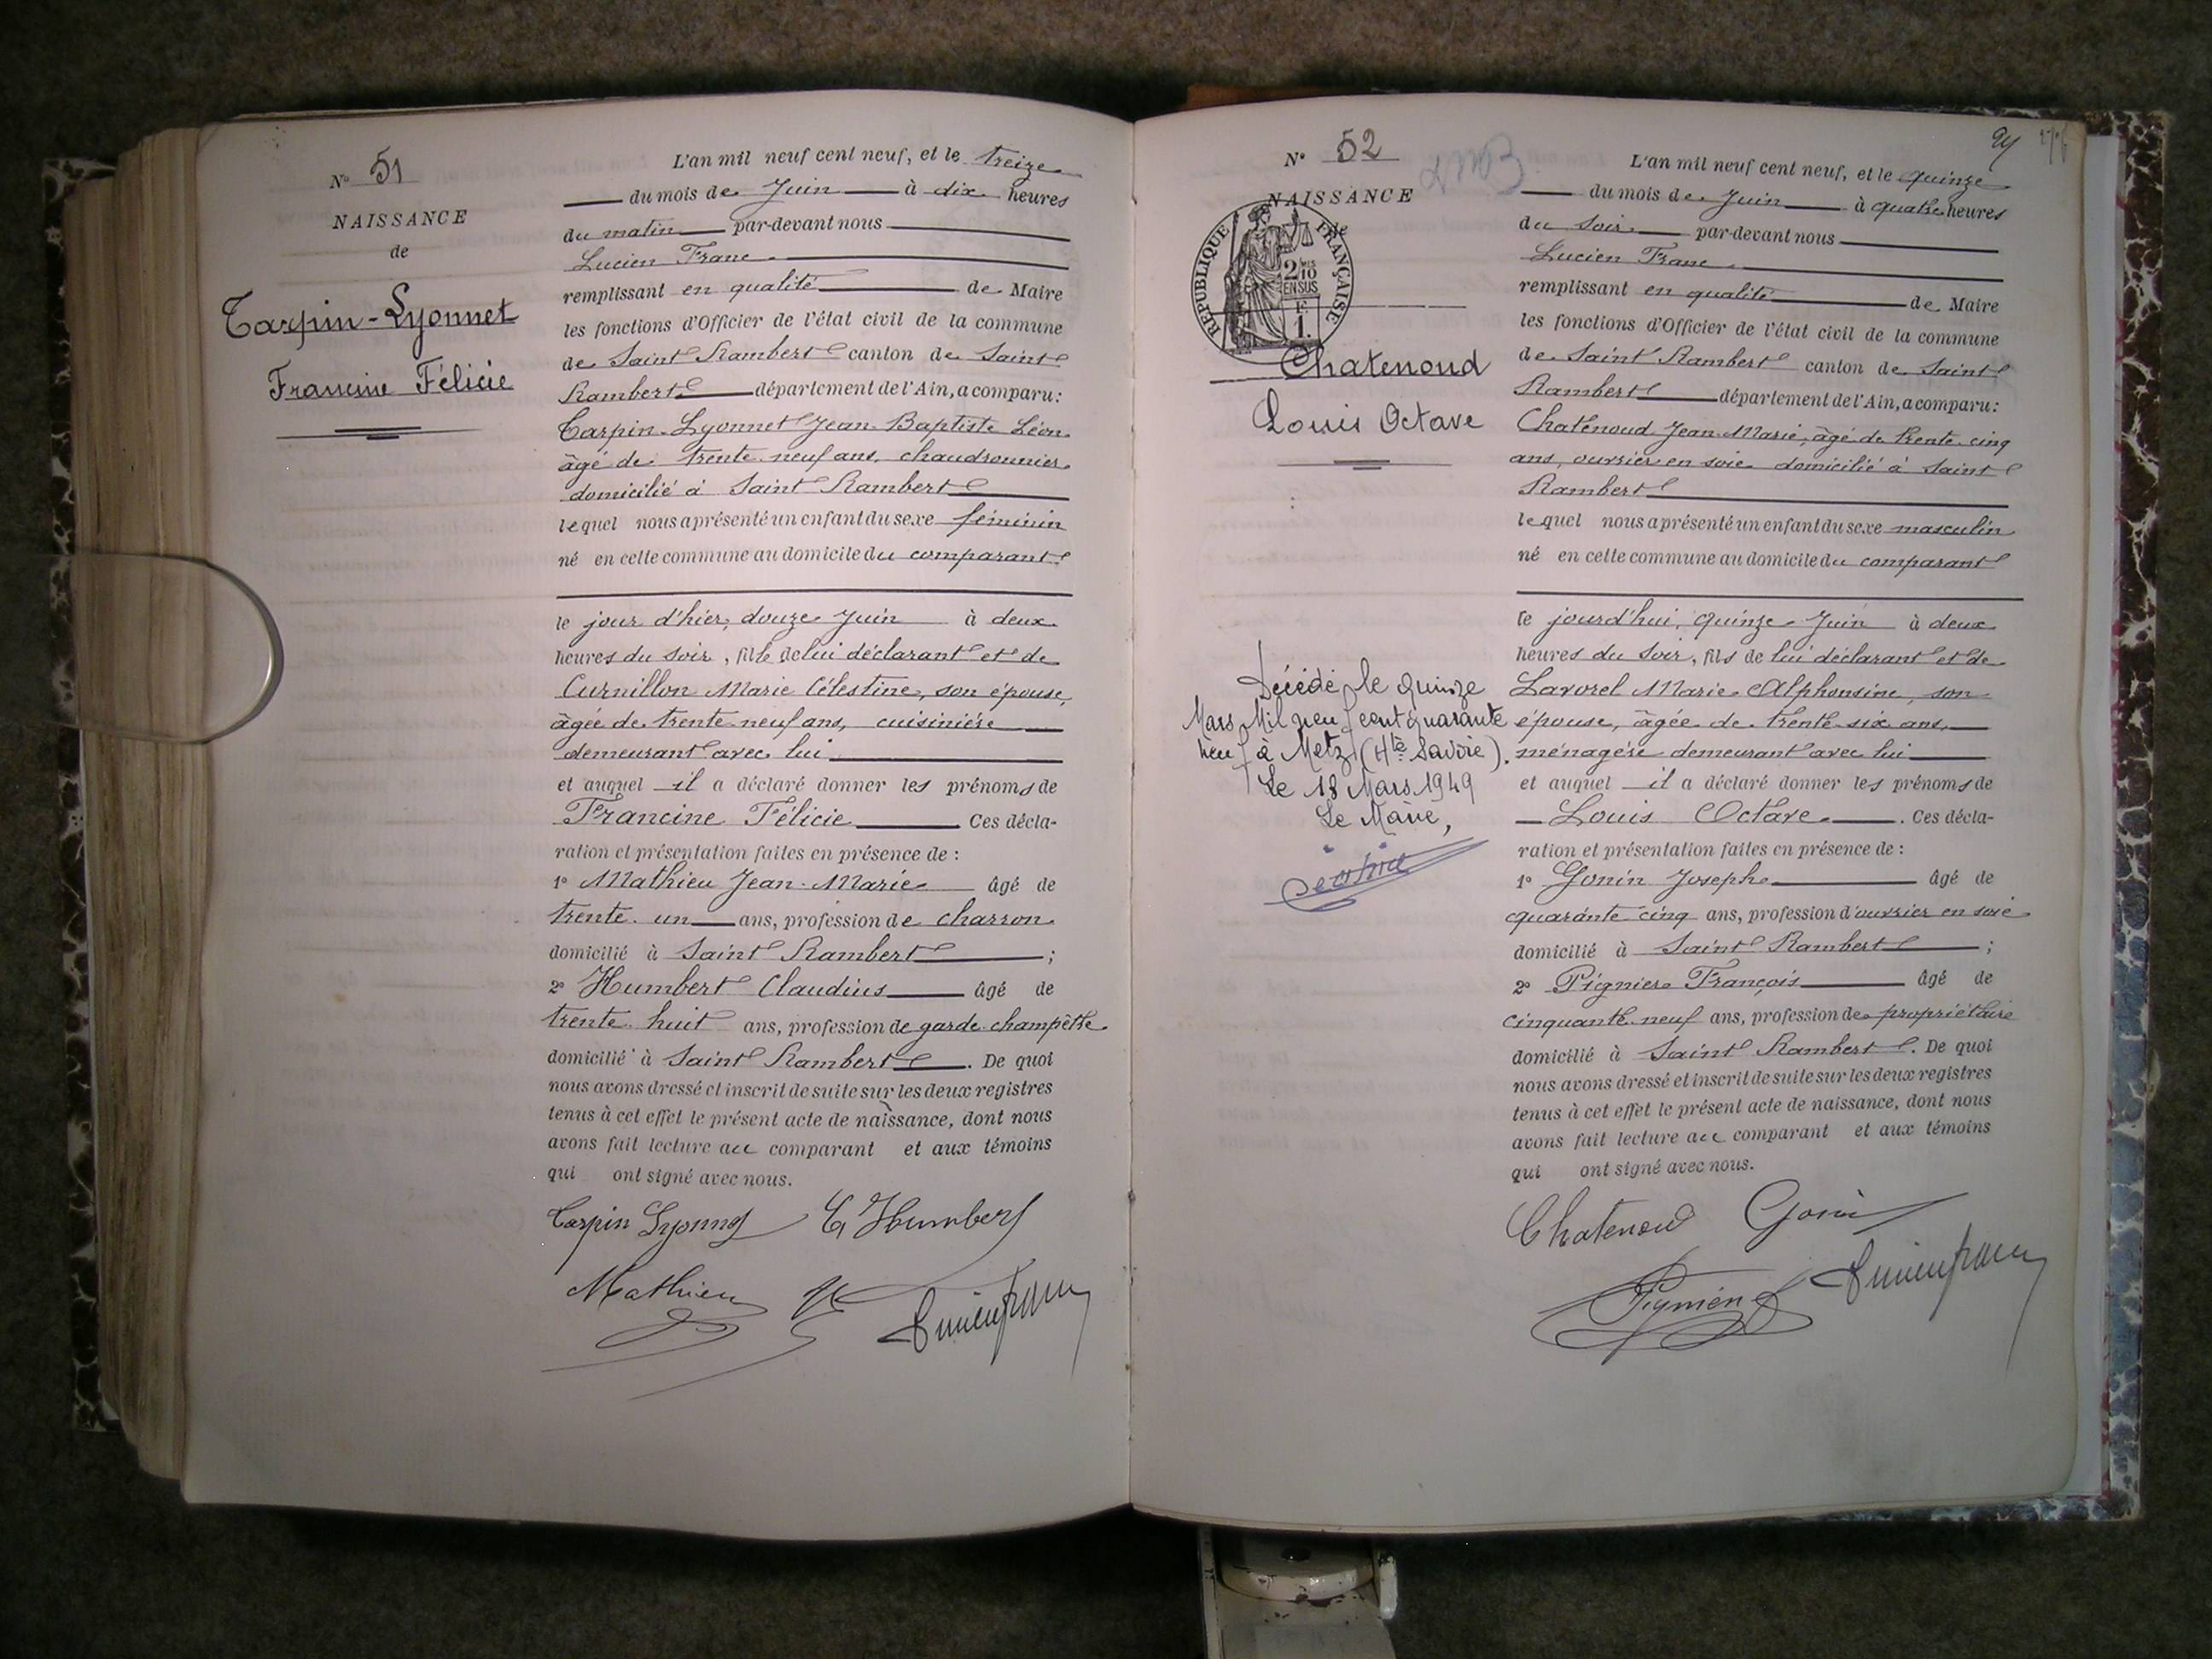 N° 51
NAISSANCE
de
Tarpin-Lyonnet
Francine Félicie
L'an mil neuf cent neuf, et le treize
du mois de Juin à dix heures
du matin par-devant nous
Lucien Franc
remplissant en qualité de Maire
les fonctions d'Officier de l'état civil de la commune
de Saint Rambert canton de Saint
Rambert département de l'Ain, a comparu:
Tarpin-Lyonnet Jean-Baptiste Léon
âgé de trente-neuf ans, chaudronnier
domicilié à Saint Rambert
lequel nous a présenté un enfant du sexe féminin
né en cette commune au domicile du comparant
le jour d'hier, douze Juin à deux
heures du soir, fille de lui déclarant et de
Curnillon Marie Célestine, son épouse,
âgée de trente-neuf ans, cuisinière
demeurant avec lui
et auquel il a déclaré donner les prénoms de
Francine Félicie Ces décla-
ration et présentation faites en présence de :
1° Mathieu Jean-Marie âgé de
trente-un ans, profession de charron
domicilié à Saint Rambert ;
2° Humbert Claudius âgé de
trente-huit ans, profession de garde-champêtre
domicilié à Saint Rambert. De quoi
nous avons dressé et inscrit de suite sur les deux registres
tenus à cet effet le présent acte de naissance, dont nous
avons fait lecture au comparant et aux témoins
qui ont signé avec nous.
Tarpin Lyonnet Humbert
Mathieu Lucien Franc
N° 52
NAISSANCE
de
RÉPUBLIQUE FRANÇAISE
2/10 MES
EN SUS
F.
1.
Chatenoud
Louis Octave
Décédé le quinze
Mars Mil neuf cent quarante
neuf à Metz (Hte Savoie).
Le 18 Mars 1949
Le Maire,
L'an mil neuf cent neuf, et le quinze
du mois de Juin à quatre heures
du soir par-devant nous
Lucien Franc
remplissant en qualité de Maire
les fonctions d'Officier de l'état civil de la commune
de Saint Rambert canton de Saint
Rambert département de l'Ain, a comparu:
Chatenoud Jean-Marie, âgé de trente-cinq
ans, ouvrier en soie domicilié à Saint
Rambert
lequel nous a présenté un enfant du sexe masculin
né en cette commune au domicile du comparant
le jourd'hui, quinze Juin à deux
heures du soir, fils de lui déclarant et de
Lavorel Marie Alphonsine, son
épouse, âgée de trente-six ans,
ménagère demeurant avec lui
et auquel il a déclaré donner les prénoms de
Louis Octave. Ces décla-
ration et présentation faites en présence de :
1° Gonin Joseph âgé de
quarante-cinq ans, profession d'ouvrier en soie
domicilié à Saint Rambert ;
2° Pignier François âgé de
cinquante-neuf ans, profession de propriétaire
domicilié à Saint Rambert. De quoi
nous avons dressé et inscrit de suite sur les deux registres
tenus à cet effet le présent acte de naissance, dont nous
avons fait lecture au comparant et aux témoins
qui ont signé avec nous.
Chatenoud Gonin
Lucien Franc